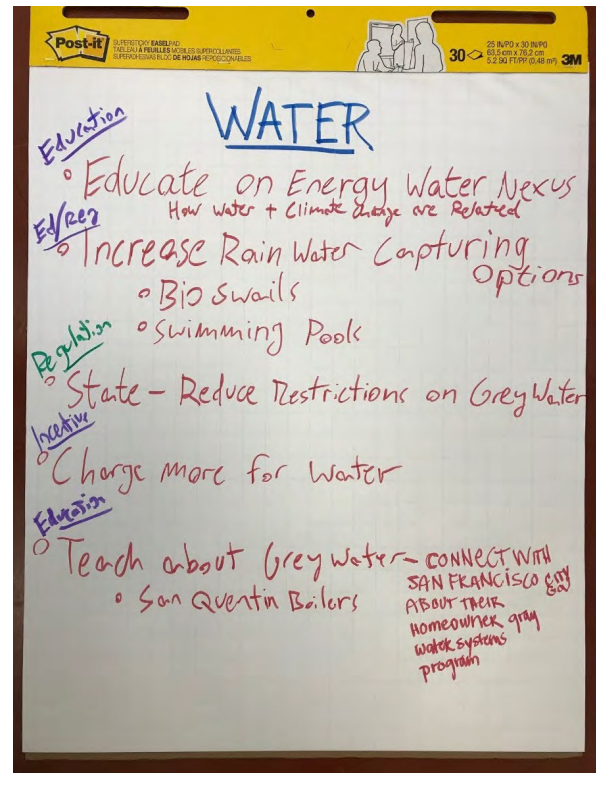 Post-it
SUPERSTICKY EASEL PAD
TABLEAU À FEUILLES MOBILES SUPERCOLLANTES
SUPERADHESIVAS BLOC DE HOJAS REPOSICIONABLES
30
25 IN/PO x 30 IN/PO
63,5 cm x 76,2 cm
5.2 SQ FT/PP (0,48 m²)
3M
WATER
Education
Educate on Energy Water Nexus
How Water + Climate Change are Related
Ed/Reg
Increase Rain Water Capturing
Options
Bio Swails
Swimming Pools
Regulation
State - Reduce Restrictions on Grey Water
Incentive
Charge more for Water
Education
Teach about Grey Water - CONNECT WITH
SAN FRANCISCO City
Gov
ABOUT THEIR
San Quentin Boilers
HOMEOWNER gray
water systems
program